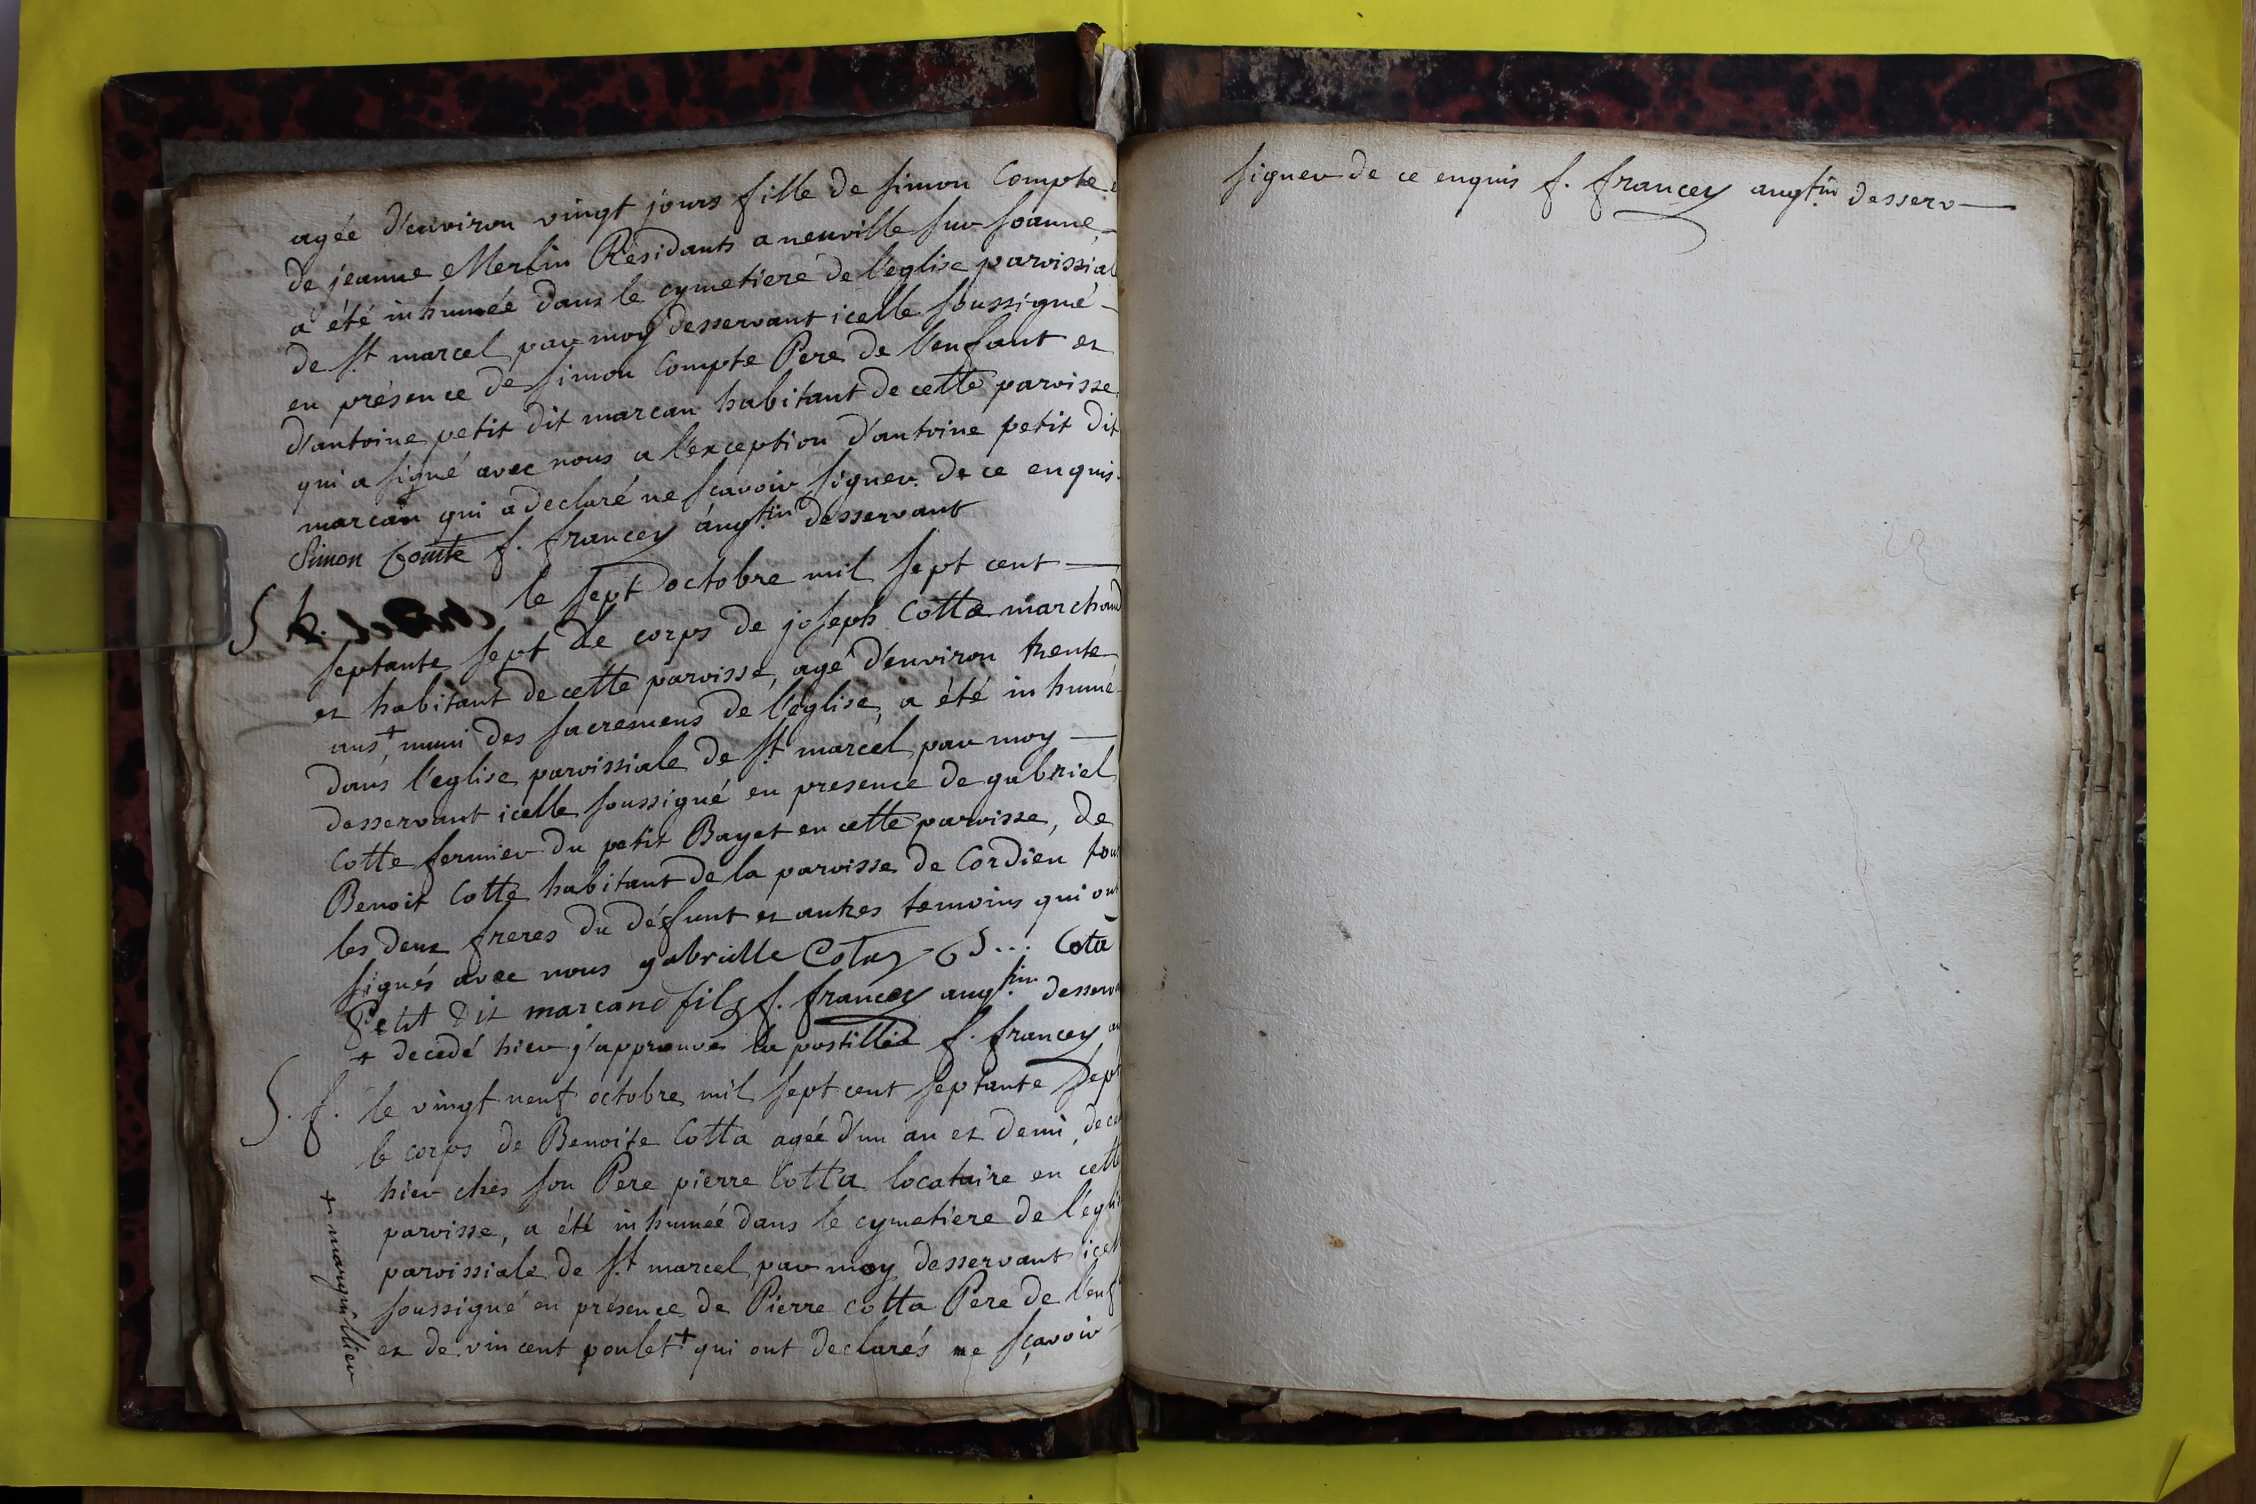 agée d'environ vingt jours fille de simon Compte
de jeanne Merlin Résidants a neuville sur soanne,
a été inhumée dans le cymetiere de l'eglise paroissial
de s.t marcel par moy desservant icelle soussigné
en présence de simon Compte Pere de l'enfant et
d'antoine petit dit marcan habitant de cette paroisse
qui a signé avec nous a l'exception d'antoine petit dit
marcan qui a declaré ne sçavoir signer de ce enquis.
Simon Comte f. francey augtin desservant
le sept octobre mil sept cent
septante sept le corps de joseph Cotta marchand
et habitant de cette paroisse, agé d'environ trente
ans + muni des sacremens de l'église, a été inhumé
dans l'eglise paroissiale de s.t marcel par moy
desservant icelle soussigné en presence de gabriel
Cotte fermier du petit Bayet en cette paroisse, de
Benoit Cotte habitant de la paroisse de Cordieu tous
les deux freres du défunt et autres temoins qui ont
signés avec nous gabrielle Cotay Cota
Petit Dit marcand fils f. francey augtin desserv
+ decedé hier j'approuve la postille f. francey au
S. f. le vingt neuf octobre mil sept cent septante sept
le corps de Benoite Cotta agée d'un an et demi, dece
hier ches son Pere pierre Cotta locataire en cette
paroisse, a été inhumée dans le cymetiere de l'égli
paroissiale de s.t marcel par moy desservant icell
soussigné en présence de Pierre cotta Pere de l'enf
et de vincent poulet + qui ont declarés ne sçavoir
+ marguillier
signer de ce enquis f. francey augtin desserv